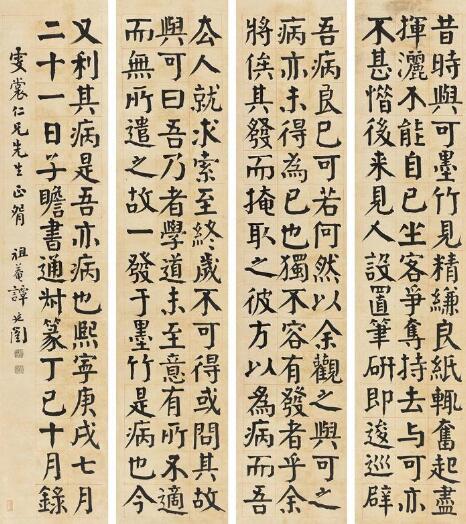 昔時與可墨竹見精縑良紙輒奮起盡
揮灑不能自已坐客爭奪持去与可亦
不甚惜後来見人設置筆研即逡巡辟
去人就求索至終歲不可得或問其故
與可曰吾乃者學道未至意有所不適
而無所遣之故一發于墨竹是病也今
吾病良已可若何然以余觀之與可之
病亦未得為已也獨不容有發者乎余
將俟其發而掩取之彼方以為病而吾
又利其病是吾亦病也熙寧庚戌七月
二十一日子瞻書通叔篆丁巳十月錄
雯裳仁兄先生正 祖菴譚延闓